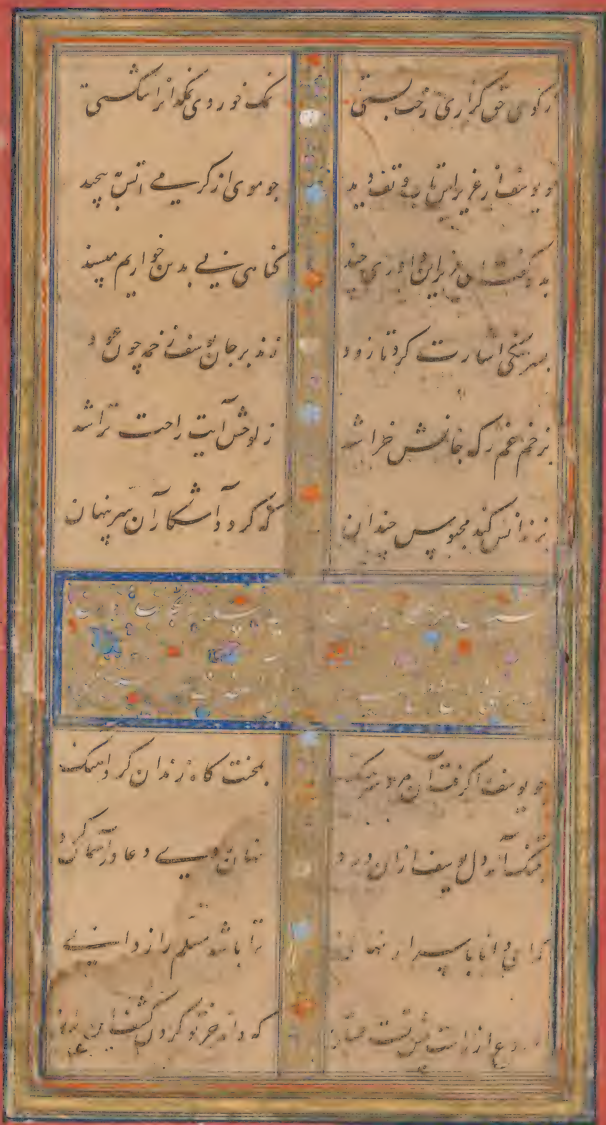 ز کوی حق گزاری رخت بستی نمک خوردی نمکدانرا شکستی
چو یوسف از عزیز این تاب و تف دید چو موی از گرمی آتش بپیچید
بدو گفت ای عزیز این داوری چند گناهی نی بدین خواریم مپسند
بسرهنگی اشارت کرد تا زود زند بر جان یوسف زخمه چون عود
بزخم غم رگ جانش خراشد ز لوحش آیت راحت تراشد
بزندانش کند محبوس چندان که گردد آشکار آن سر پنهان
چو یوسف را گرفت آن مرد سرهنگ بمحنت گاه زندان کرد آهنگ
بتنگ آمد دل یوسف از ان درد نهان روی دعا در آسمان کرد
که ای دانا باسرار نهانی ترا باشد مسلم راز دانی
دروغ از راست پیش تست ممتاز که داند جز تو کردن کشف این راز